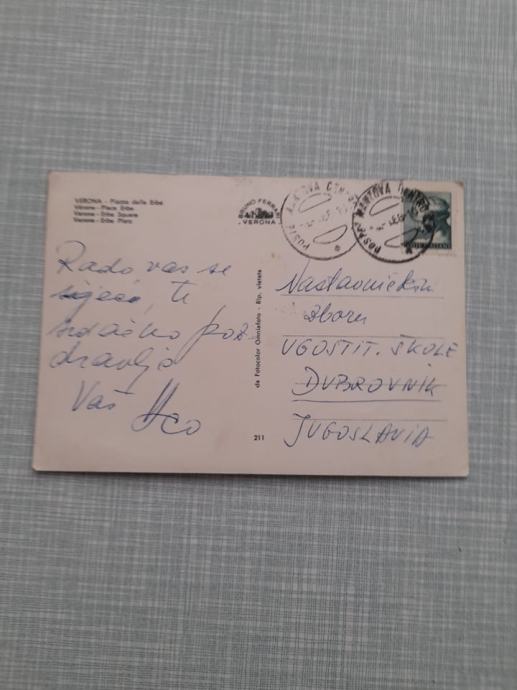 VERONA - Piazza delle Erbe
Vérone - Place Erbe
Verona - Erbe Square
Verona - Erbe Platz
BRUNO FERRARI
VERONA
MANTOVA
MANTOVA CENTRO
POSTE ITALIANE
Rado vas se
sjeća, te
srdačno poz-
dravlja
Vaš
da Fotocolor Omniafoto - Rip. vietata
211
Nastavničkom
zboru
UGOSTIT. ŠKOLE
DUBROVNIK
JUGOSLAVIA